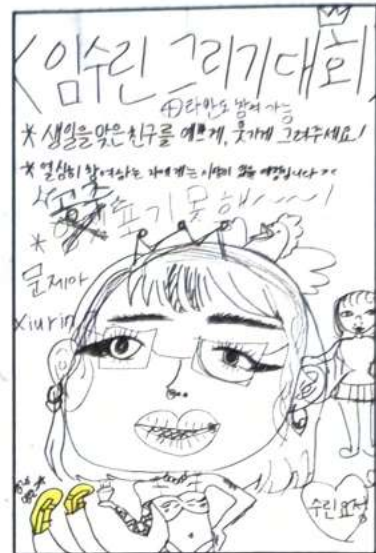 <임수린 그리기대회>
⊕라만도 참여 가능
* 생일을 맞은 친구를 예쁘게, 웃기게 그려주세요!
* 열심히 참여하는 자에게는 이 있을 예정입니다 ><
* 포기못해~~~!
문제아
xiurin
수린요정